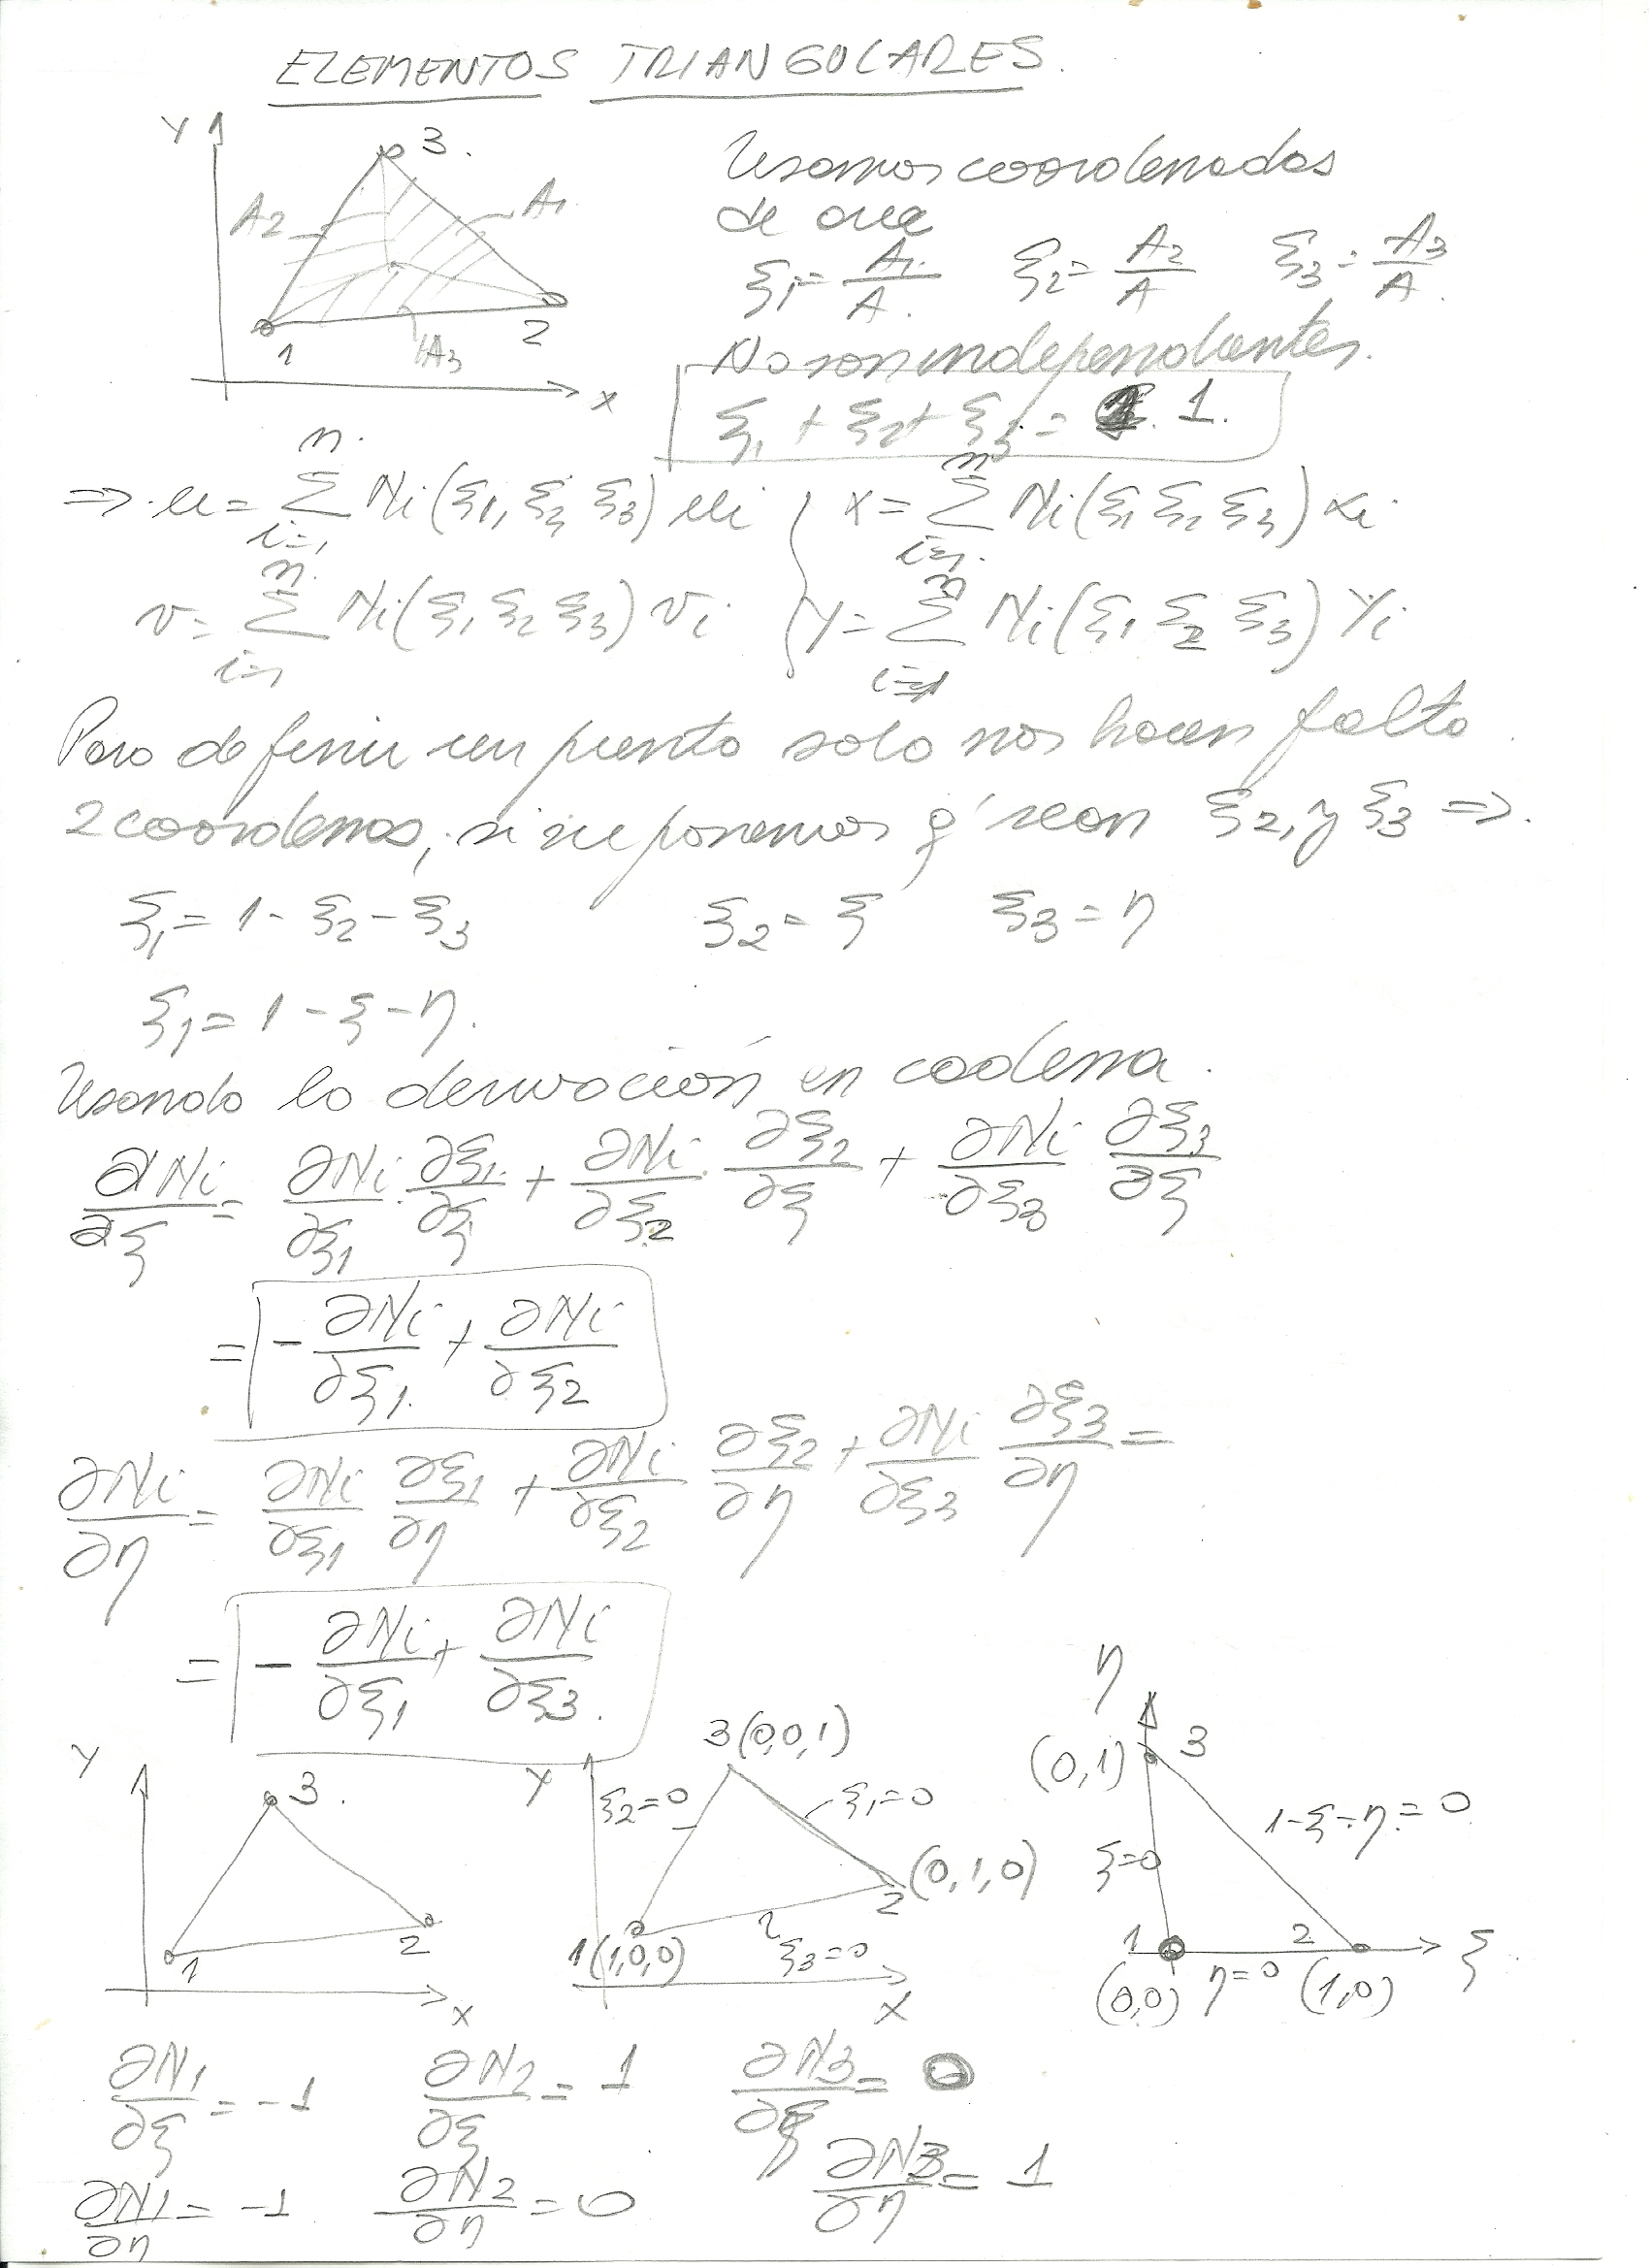 ELEMENTOS TRIANGULARES.
Y
3.
A2
A1
1
2
A3
x
Usamos coordenadas
de area
ξ1 = A1/A. ξ2 = A2/A ξ3 = A3/A.
No son independientes.
ξ1 + ξ2 + ξ3 = 1.
⇒ u = ∑_{i=1}^{n} Ni(ξ1, ξ2 ξ3) ui
x = ∑_{i=1}^{n} Ni(ξ1 ξ2 ξ3) xi
v = ∑_{i=1}^{n} Ni(ξ1 ξ2 ξ3) vi
y = ∑_{i=1}^{n} Ni(ξ1 ξ2 ξ3) yi
Para definir un punto solo nos hacen falta
2 coordenas, si suponemos q' sean ξ2, y ξ3 ⇒.
ξ1 = 1 - ξ2 - ξ3 ξ2 = ξ ξ3 = η
ξ1 = 1 - ξ - η.
Usando la derivación en cadena.
∂Ni/∂ξ = ∂Ni/∂ξ1 · ∂ξ1/∂ξ + ∂Ni/∂ξ2 · ∂ξ2/∂ξ + ∂Ni/∂ξ3 ∂ξ3/∂ξ
= - ∂Ni/∂ξ1 + ∂Ni/∂ξ2
∂Ni/∂η = ∂Ni/∂ξ1 ∂ξ1/∂η + ∂Ni/∂ξ2 ∂ξ2/∂η + ∂Ni/∂ξ3 ∂ξ3/∂η =
= - ∂Ni/∂ξ1 + ∂Ni/∂ξ3.
Y
3.
1
2
x
Y
3(0,0,1)
ξ2=0
ξ1=0
(0,1,0)
2
1(1,0,0)
ξ3=0
X
η
(0,1) 3
1-ξ-η=0
ξ=0
1
2
ξ
(0,0) η=0 (1,0)
∂N1/∂ξ = -1 ∂N2/∂ξ = 1 ∂N3/∂ξ = 0
∂N1/∂η = -1 ∂N2/∂η = 0 ∂N3/∂η = 1